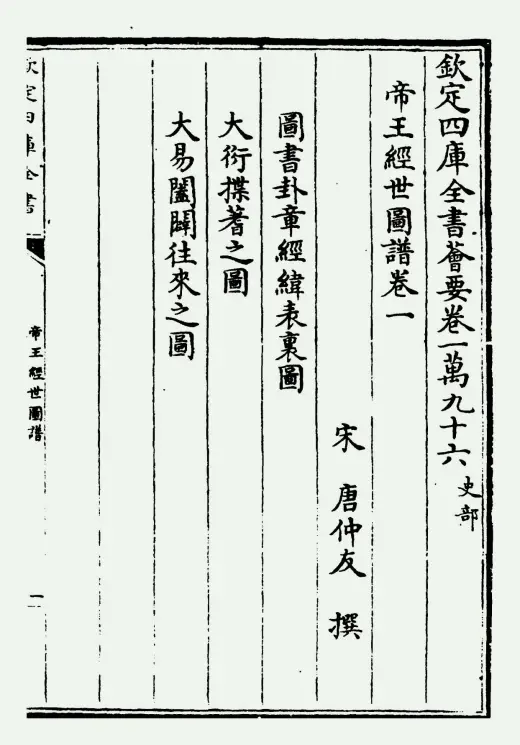 欽定四庫全書薈要卷一萬九十六 史部
帝王經世圖譜卷一
宋 唐仲友 撰
圖書卦章經緯表裏圖
大衍揲蓍之圖
大易闔闢往來之圖
欽定四庫全書
帝王經世圖譜
一